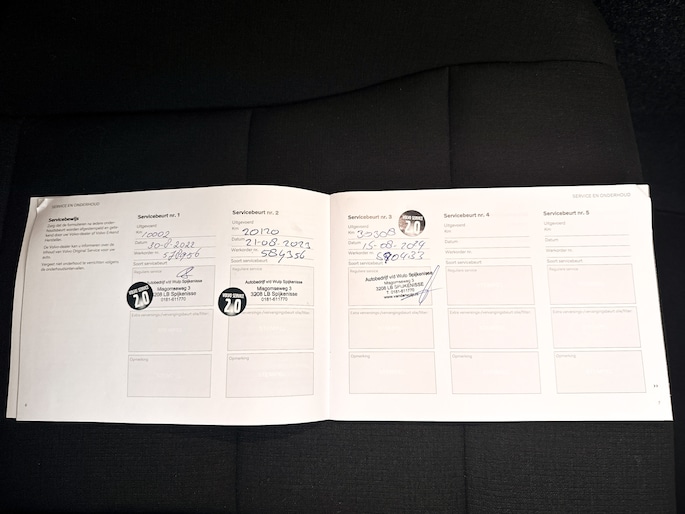 SERVICE EN ONDERHOUD
Servicebewijs
Zorg dat de formulieren na iedere onder-
houdsbeurt worden afgestempeld en gete-
kend door uw Volvo-dealer of Volvo Erkend
Hersteller.
De Volvo-dealer kan u informeren over de
inhoud van Volvo Original Service voor uw
auto.
Vergeet niet onderhoud te verrichten volgens
de onderhoudsintervallen.
Servicebeurt nr. 1
Uitgevoerd
Km 10002
Datum 30-8-2022
Werkorder nr. 578956
Soort servicebeurt
Reguliere service
Autobedrijf v/d Wulp Spijkenisse
Misgomseweg 3
3208 LB Spijkenisse
0181-611770
VOLVO SERVICE
2.0
Opmerking
Servicebeurt nr. 2
Uitgevoerd
Km 20120
Datum 21-08-2023
Werkorder nr. 584356
Soort servicebeurt
Reguliere service
Autobedrijf v/d Wulp Spijkenisse
Misgomseweg 3
3208 LB Spijkenisse
0181-611770
VOLVO SERVICE
2.0
Opmerking
SERVICE EN ONDERHOUD
Servicebeurt nr. 3
VOLVO SERVICE
2.0
Uitgevoerd
Km 30308
Datum 15-08-2024
Werkorder nr. 590433
Soort servicebeurt
Reguliere service
Autobedrijf v/d Wulp Spijkenisse
Misgomseweg 3
3208 LB SPIJKENISSE
T. 0181-611770
Opmerking
Servicebeurt nr. 4
Uitgevoerd
Km
Datum
Werkorder nr.
Soort servicebeurt
Reguliere service
Opmerking
Servicebeurt nr. 5
Uitgevoerd
Km
Datum
Werkorder nr.
Soort servicebeurt
Reguliere service
Opmerking